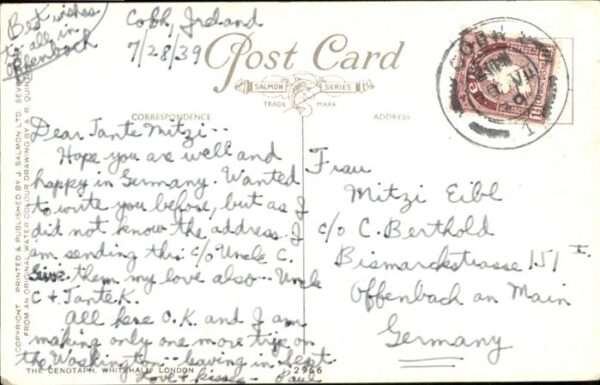 Best wishes
to all in
Offenbach
Cobh, Ireland
7/28/39
Post Card
SALMON SERIES
TRADE MARK
CORRESPONDENCE
ADDRESS
Dear Tante Mitzi--
Hope you are well and
happy in Germany. Wanted
to write you before, but as I
did not know the address I
am sending this c/o Uncle C.
Give them my love also-- Uncle
C + Tante K.
All here O.K. and I am
making only one more trip on
the Washington-- leaving in Sept.
Love + kisses - Paul
Frau
Mitzi Eibl
c/o C. Berthold
Bismarckstrasse 151 I.
Offenbach am Main
Germany
COPYRIGHT. PRINTED & PUBLISHED BY J. SALMON LTD. SEVE
FROM AN ORIGINAL WATER COLOUR DRAWING BY A. R. QUIN
THE CENOTAPH, WHITEHALL, LONDON
2966